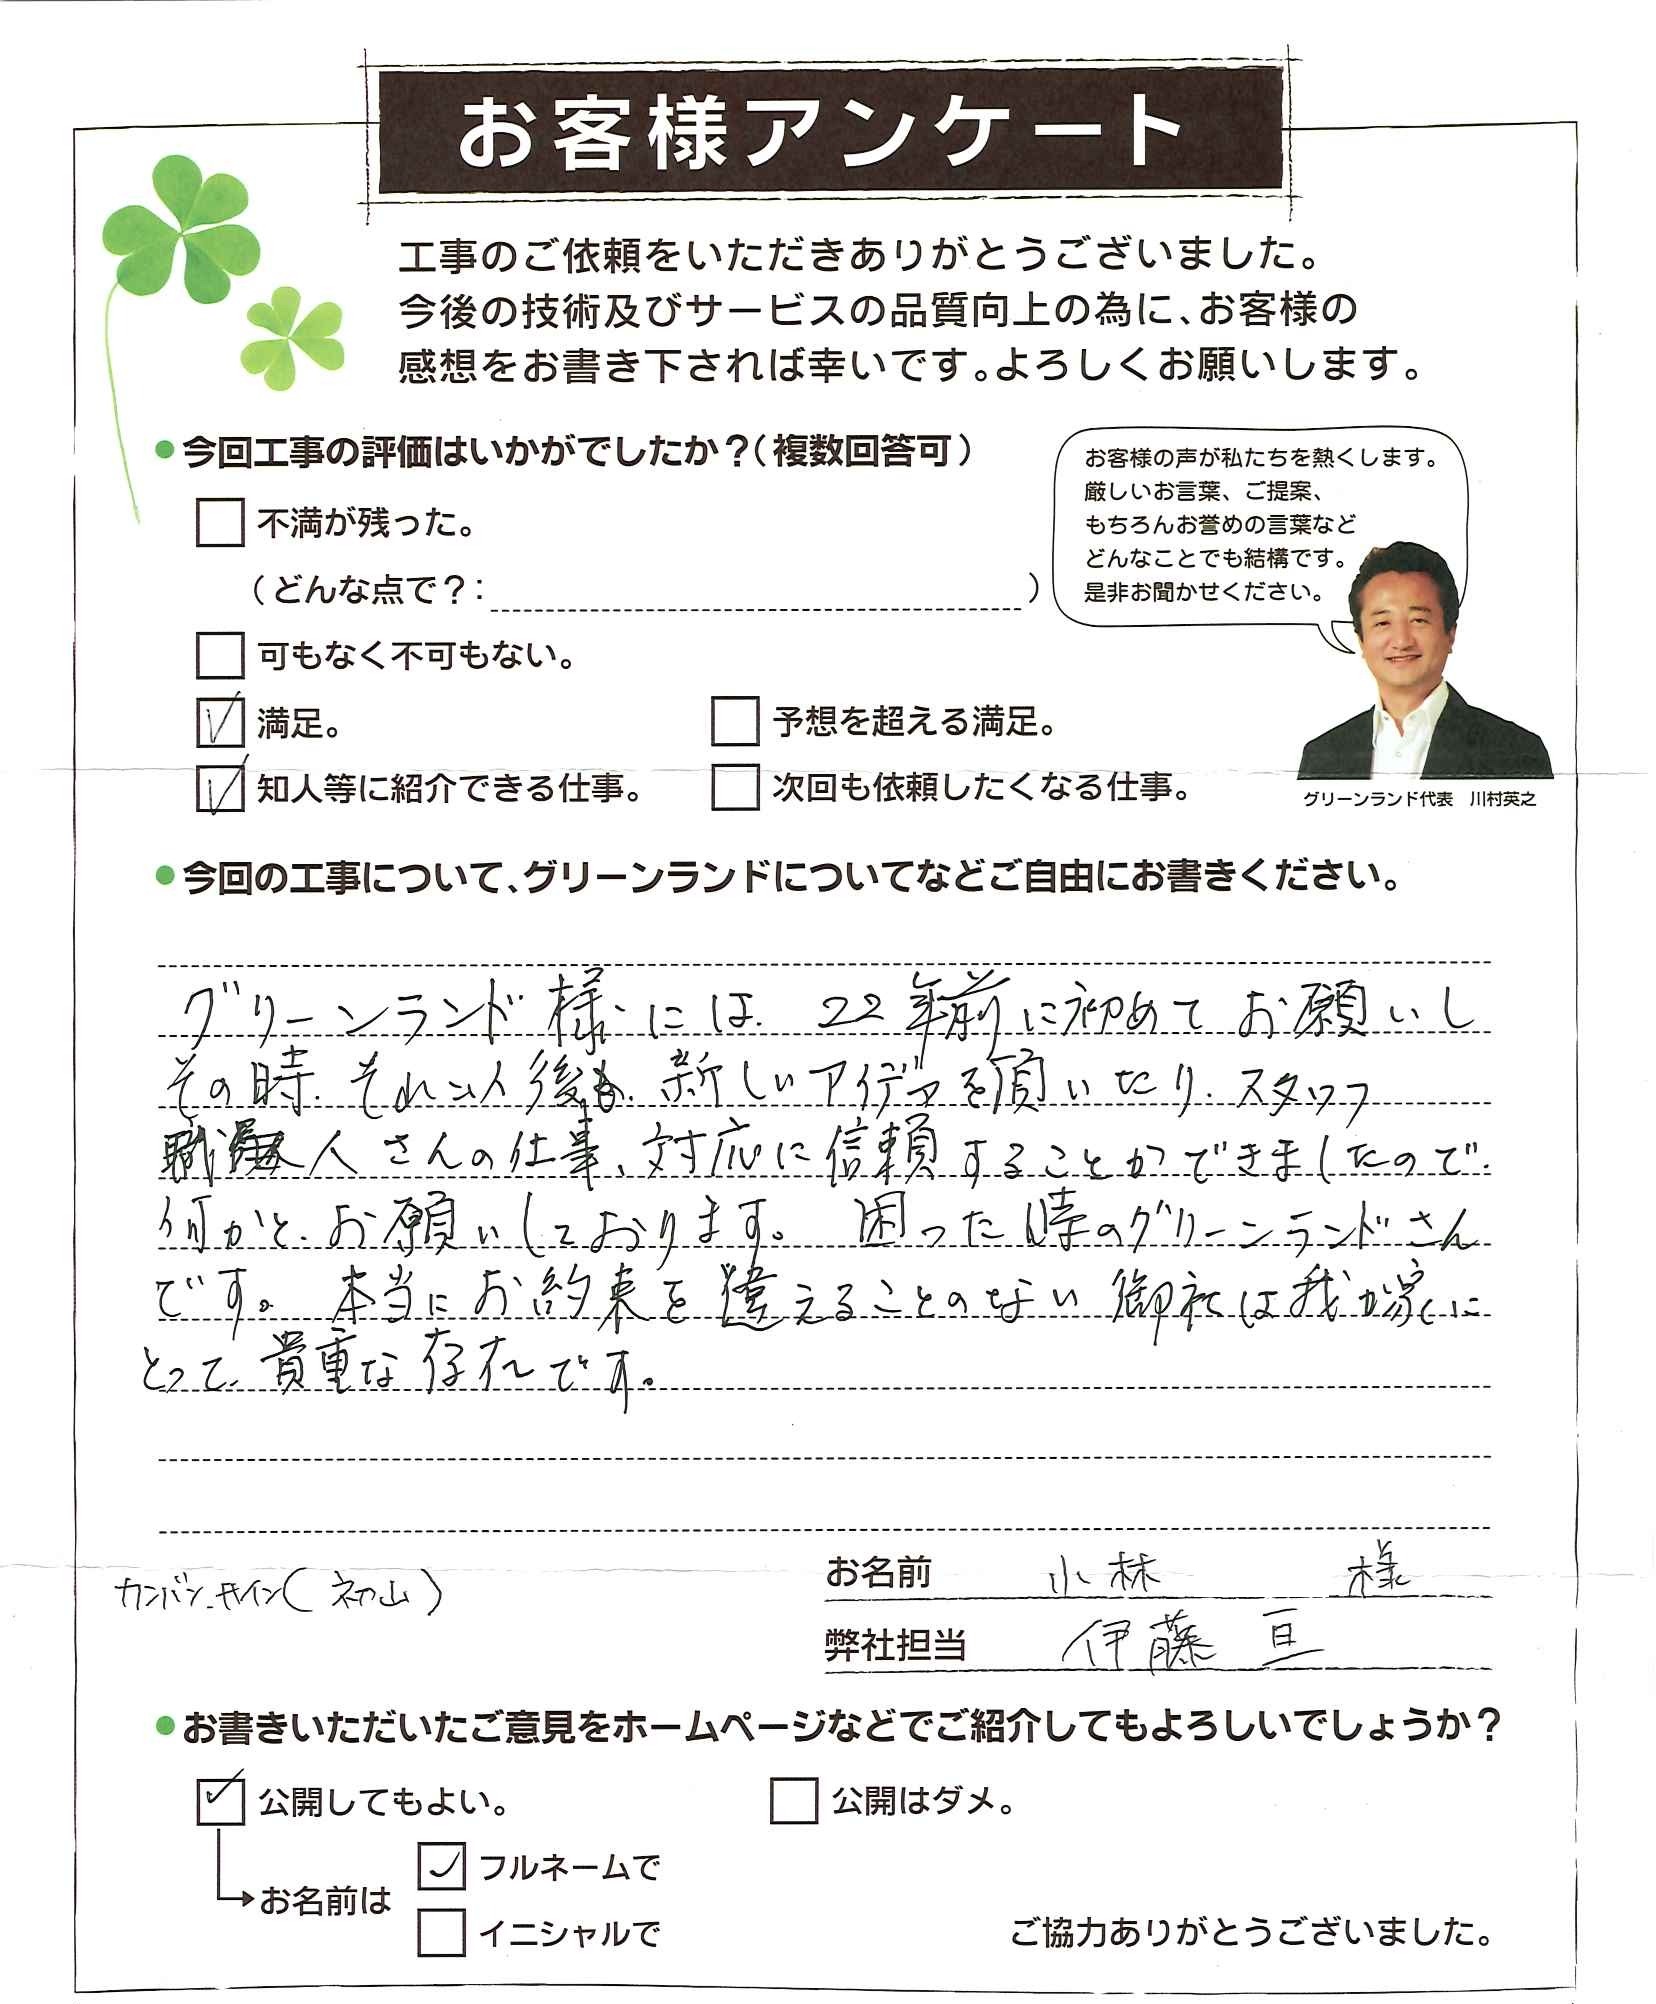 お客様アンケート
工事のご依頼をいただきありがとうございました。
今後の技術及びサービスの品質向上の為に、お客様の
感想をお書き下されば幸いです。よろしくお願いします。
●今回工事の評価はいかがでしたか？（複数回答可）
お客様の声が私たちを熱くします。
厳しいお言葉、ご提案、
もちろんお誉めの言葉など
どんなことでも結構です。
是非お聞かせください。
不満が残った。
（どんな点で？：　）
可もなく不可もない。
満足。
予想を超える満足。
知人等に紹介できる仕事。
次回も依頼したくなる仕事。
グリーンランド代表　川村英之
●今回の工事について、グリーンランドについてなどご自由にお書きください。
グリーンランド様には、22年前に初めてお願いし
その時、それ以後も、新しいアイデアを頂いたり、スタッフ
職人さんの仕事、対応に信頼することができましたので、
何かと、お願いしております。困った時のグリーンランドさん
です。本当にお約束を違えることのない御社は我が家に
とって、貴重な存在です。
お名前　小林　様
カンバン、サイン（初山）
弊社担当　伊藤 亘
●お書きいただいたご意見をホームページなどでご紹介してもよろしいでしょうか？
公開してもよい。
公開はダメ。
フルネームで
お名前は
イニシャルで
ご協力ありがとうございました。